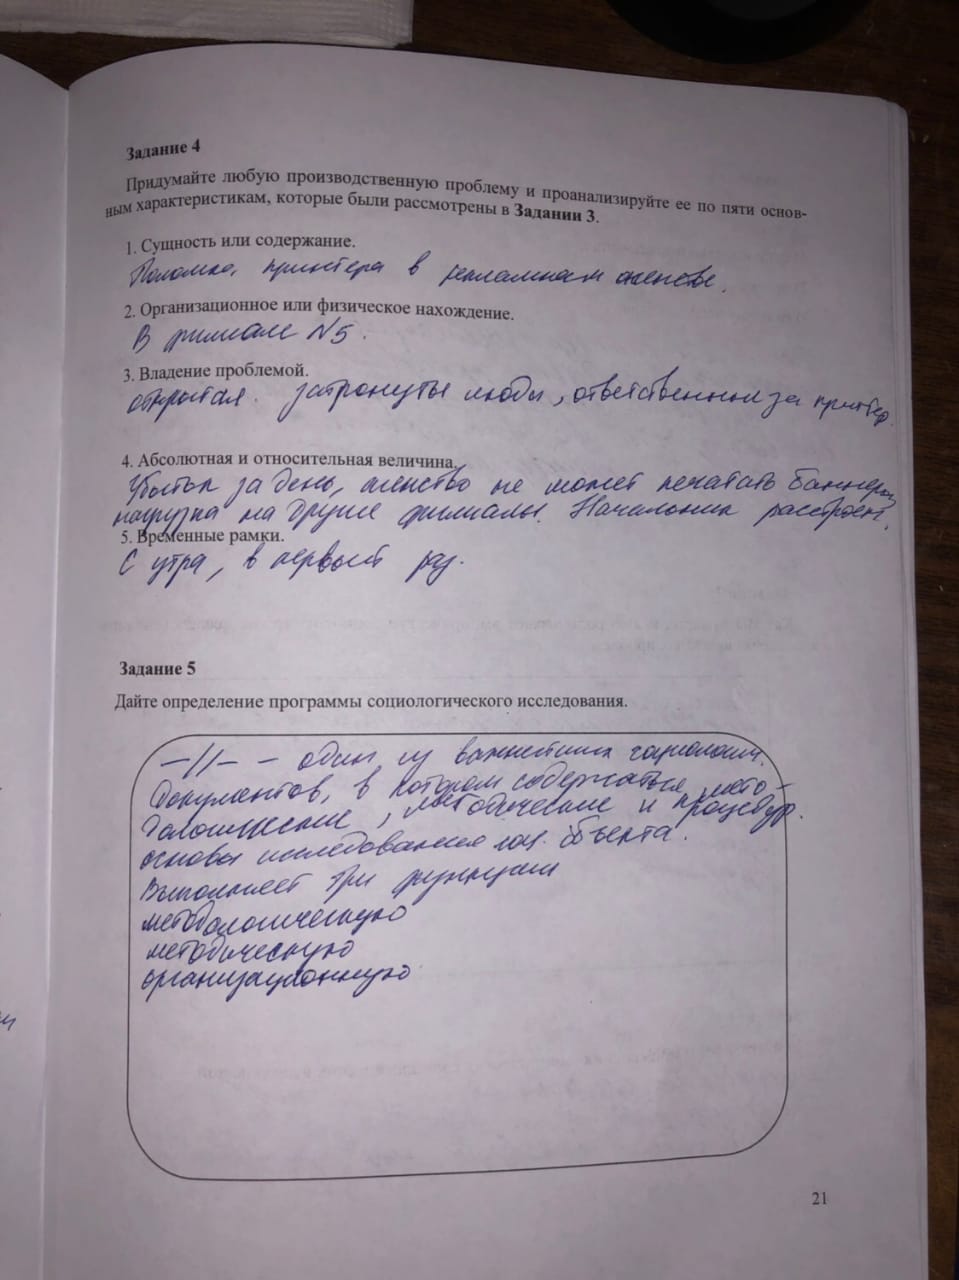 Задание 4
Придумайте любую производственную проблему и проанализируйте ее по пяти основ-
ным характеристикам, которые были рассмотрены в Задании 3.
1. Сущность или содержание.
Поломка принтера в рекламном агенстве.
2. Организационное или физическое нахождение.
В филиале №5.
3. Владение проблемой.
открытая. затронуты люди, ответственный за принтер.
4. Абсолютная и относительная величина.
Убыток за день, агенство не может печатать баннеры,
нагрузка на другие филиалы. Начальник расстроен.
5. Временные рамки.
С утра, в первый раз.
Задание 5
Дайте определение программы социологического исследования.
–//– - один из важнейших социологич.
документов, в котором содержаться мето-
дологические, методические и процедур.
основы исследования соц. объекта.
Выполняет три функции
методологическую
методическую
организационную
21